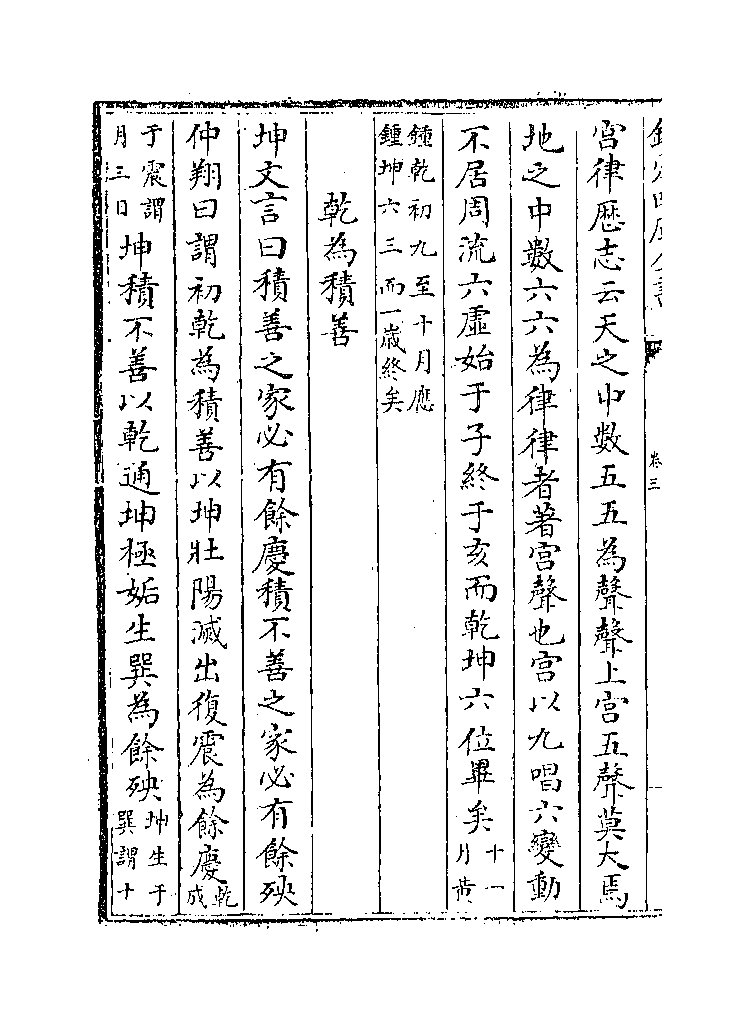 欽定四庫全書
卷三
宮律厯志云天之中數五五為聲聲上宮五聲莫大焉
地之中數六六為律律者著宮聲也宮以九唱六變動
不居周流六虛始于子終于亥而乾坤六位畢矣十一月黃
鍾乾初九至十月應
鍾坤六三而一歲終矣
乾為積善
坤文言曰積善之家必有餘慶積不善之家必有餘殃
仲翔曰謂初乾為積善以坤壯陽滅出復震為餘慶乾成
于震謂月三日坤積不善以乾通坤極姤生巽為餘殃坤生于巽謂十